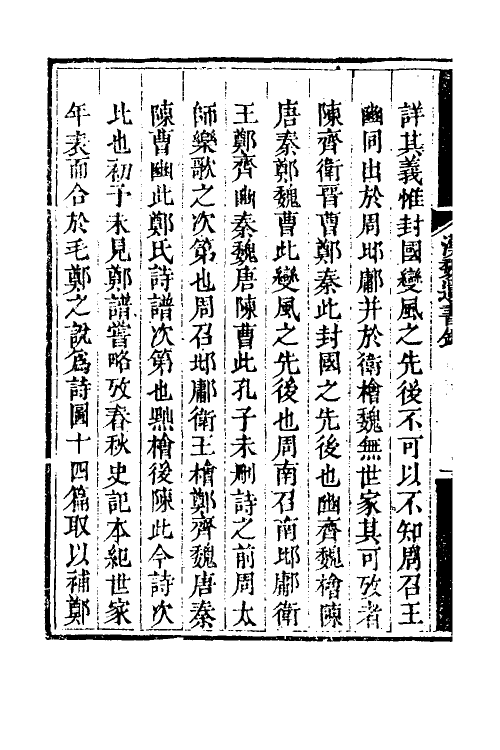 詳其義惟封國變風之先後不可以不知周召王
豳同出於周邶鄘并於衛檜魏無世家其可攷者
陳齊衛晉曹鄭秦此封國之先後也豳齊魏檜陳
唐秦鄭魏曹此變風之先後也周南召南邶鄘衛
王鄭齊豳秦魏唐陳曹此孔子未刪詩之前周太
師樂歌之次第也周召邶鄘衛王檜鄭齊魏唐秦
陳曹豳此鄭氏詩譜次第也黜檜後陳此今詩次
比也初予未見鄭譜嘗略攷春秋史記本紀世家
年表而合於毛鄭之說為詩圖十四篇取以補鄭
漢魏遺書鈔